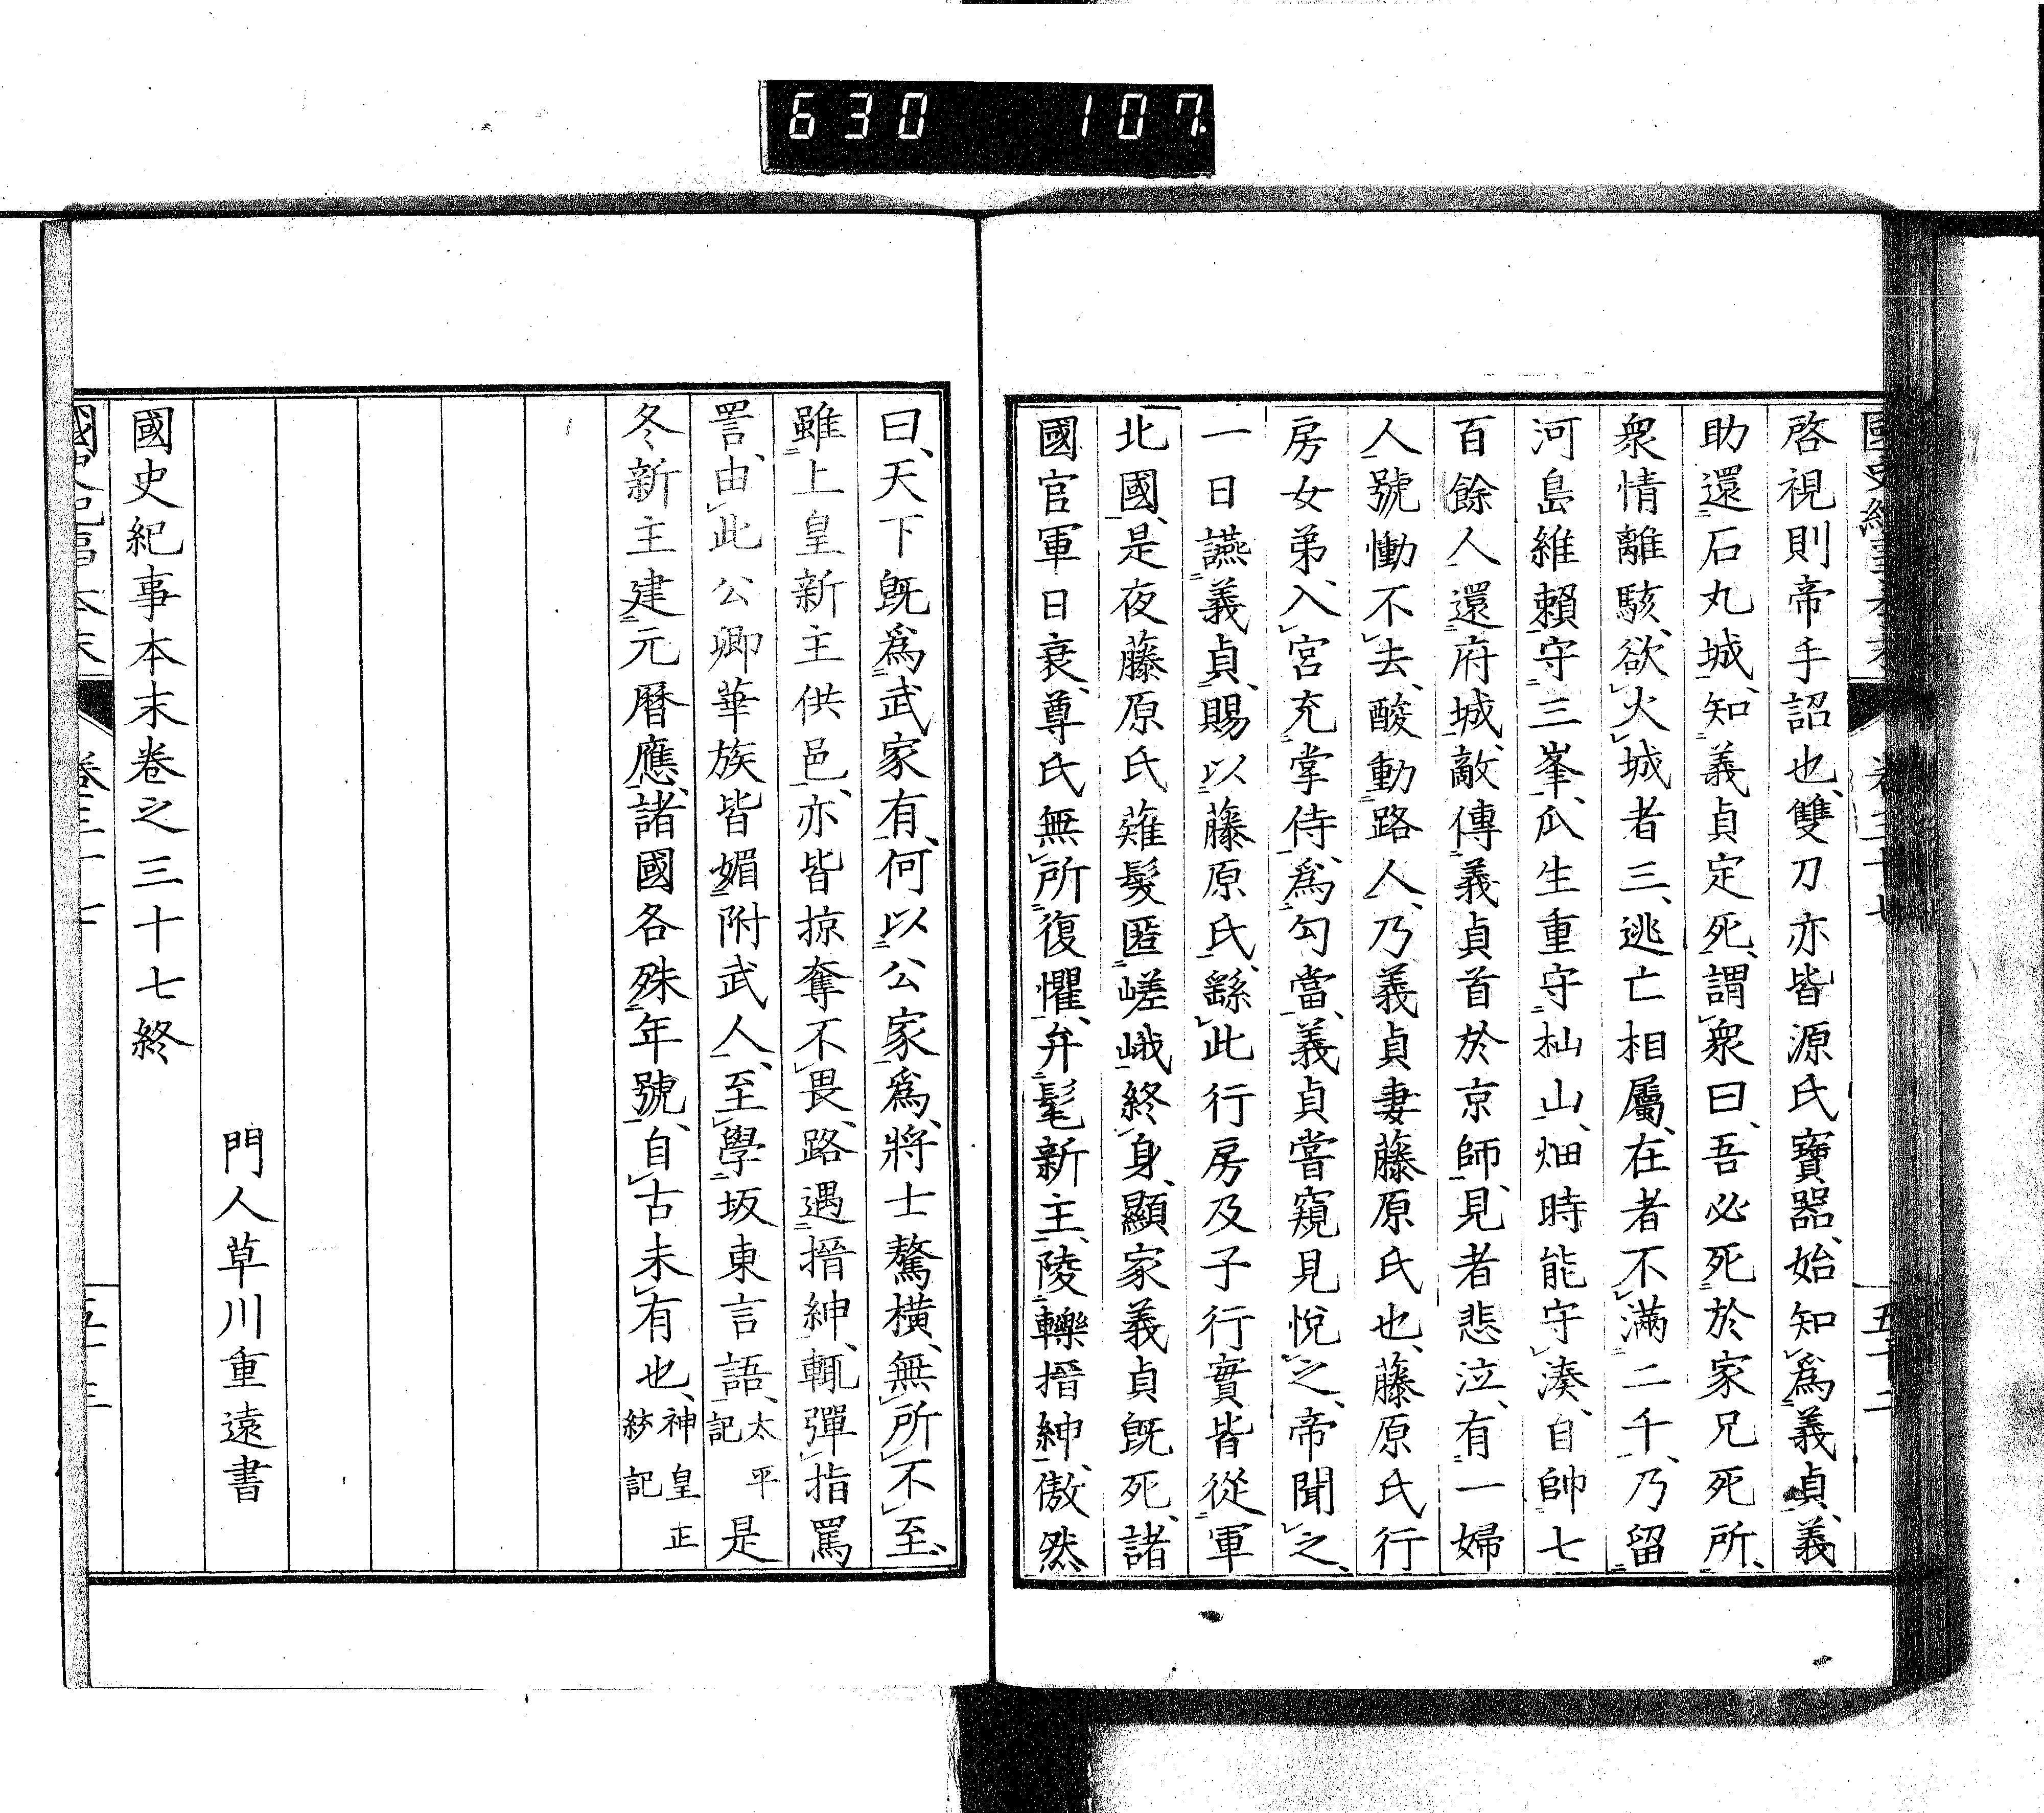 630 107
啓視則帝手詔也、雙刀亦皆源氏寶器、始知爲義貞、義
助還石丸城、知義貞定死、謂衆曰、吾必死於家兄死所、
衆情離駭、欲火城者三、逃亡相屬、在者不滿二千、乃留
河島維賴守三峯、瓜生重守杣山、畑時能守湊、自帥七
百餘人還府城、敵傳義貞首於京師、見者悲泣、有一婦
人號慟不去、酸動路人、乃義貞妻藤原氏也、藤原氏行
房女弟、入宮充掌侍、爲勾當、義貞嘗窺見悅之、帝聞之、
一日讌義貞、賜以藤原氏、繇此行房及子行實皆從軍
北國、是夜藤原氏薙髮匿嵯峨終身、顯家義貞既死、諸
國官軍日衰、尊氏無所復懼、弁髦新主、陵轢搢紳、傲然
曰、天下既爲武家有、何以公家爲、將士驁橫、無所不至、
雖上皇新主供邑、亦皆掠奪不畏、路遇搢紳、輒彈指罵
詈、由此公卿華族皆媚附武人、至學坂東言語、太平記 是
冬新主建元曆應、諸國各殊年號、自古未有也、神皇正統記
門人草川重遠書
國史紀事本末卷之三十七終